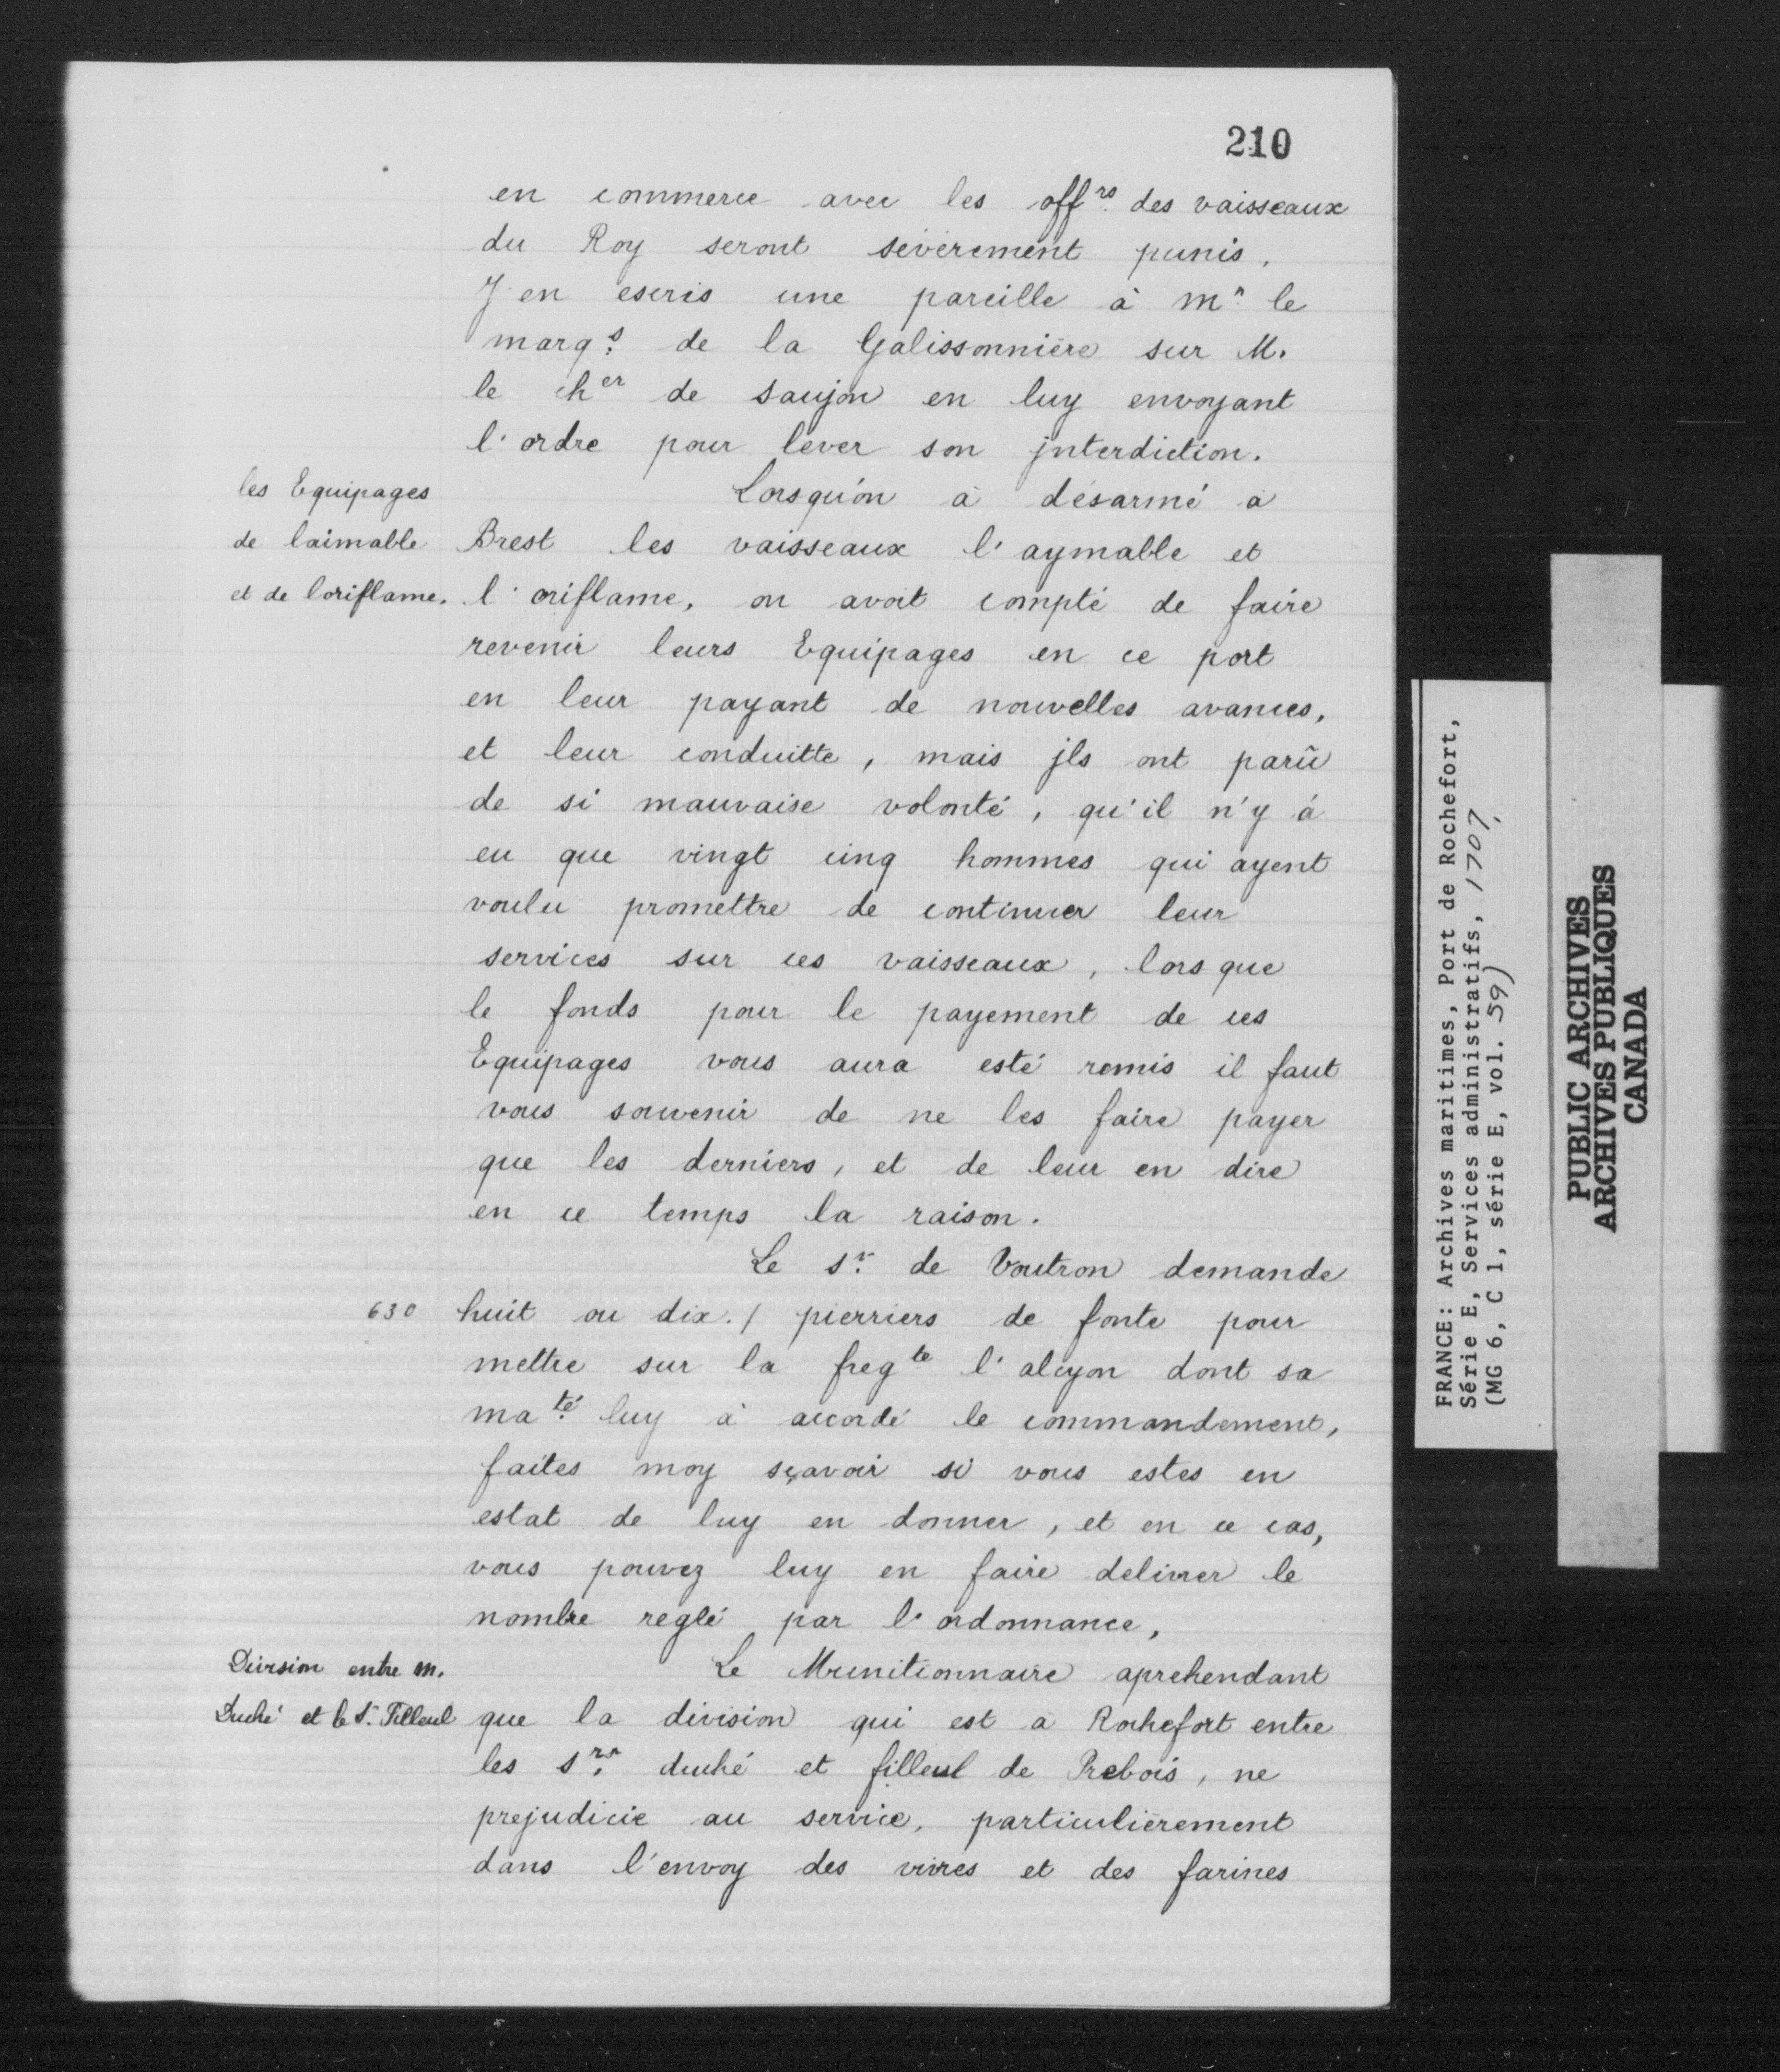 210
en commerce avec les off.rs des vaisseaux
du Roy seront sévèrement punis.
J'en escris une pareille à Mr le
marq.s de la Galissonnière sur M.
le cher de Saujon en luy envoyant
l'ordre pour lever son jnterdiction.
les Equipages
de laimable
et de loriflame.
Lorsqu'on à désarmé à
Brest les vaisseaux l'aymable et
l'oriflame, on avoit compté de faire
revenir leurs Equipages en ce port
en leur payant de nouvelles avances,
et leur conduitte, mais jls ont parû
de si mauvaise volonté, qu'il n'y à
eu que vingt cinq hommes qui ayent
voulu promettre de continuer leur
services sur ces vaisseaux, lors que
le fonds pour le payement de ces
Equipages vous aura esté remis il faut
vous souvenir de ne les faire payer
que les derniers, et de leur en dire
en ce temps la raison.
Le Sr. de Voutron demande
630 huit ou dix. / pierriers de fonte pour
mettre sur la fregte l'alcyon dont sa
ma.té luy à accordé le commandement,
faites moy sçavoir si vous estes en
estat de luy en donner, et en ce cas,
vous pouvez luy en faire delivrer le
nombre reglé par l'ordonnance,
Division entre M.
Duché et le Sr. Filleul
Le Munitionnaire aprehendant
que la division qui est à Rochefort entre
les Srs. duché et filleul de Prebois, ne
prejudicie au service, particulièrement
dans l'envoy des vivres et des farines
FRANCE: Archives maritimes, Port de Rochefort,
Série E, Services administratifs, 1707,
(MG 6, C 1, série E, vol. 59)
PUBLIC ARCHIVES
ARCHIVES PUBLIQUES
CANADA